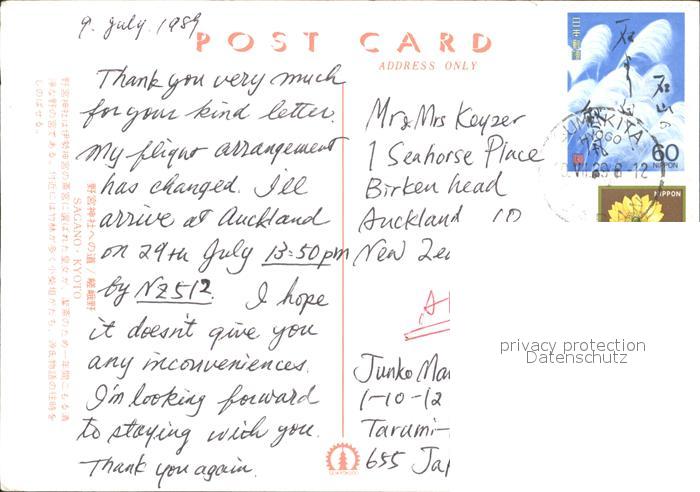 9. July. 1989
POST CARD
ADDRESS ONLY
Thank you very much
for your kind letter.
My flight arrangement
has changed. I'll
arrive at Auckland
on 29th July 13:50pm
by NZ512. I hope
it doesn't give you
any inconveniences.
I'm looking forward
to staying with you.
Thank you again.
Mr & Mrs Keyzer
1 Seahorse Place
Birkenhead
Auckland 10
New Zea
Junko Ma
1-10-12
Tarumi-
655 Jap
日本郵便
60
NIPPON
NIPPON
野宮神社への道/嵯峨野
SAGANO・KYOTO
privacy protection
Datenschutz